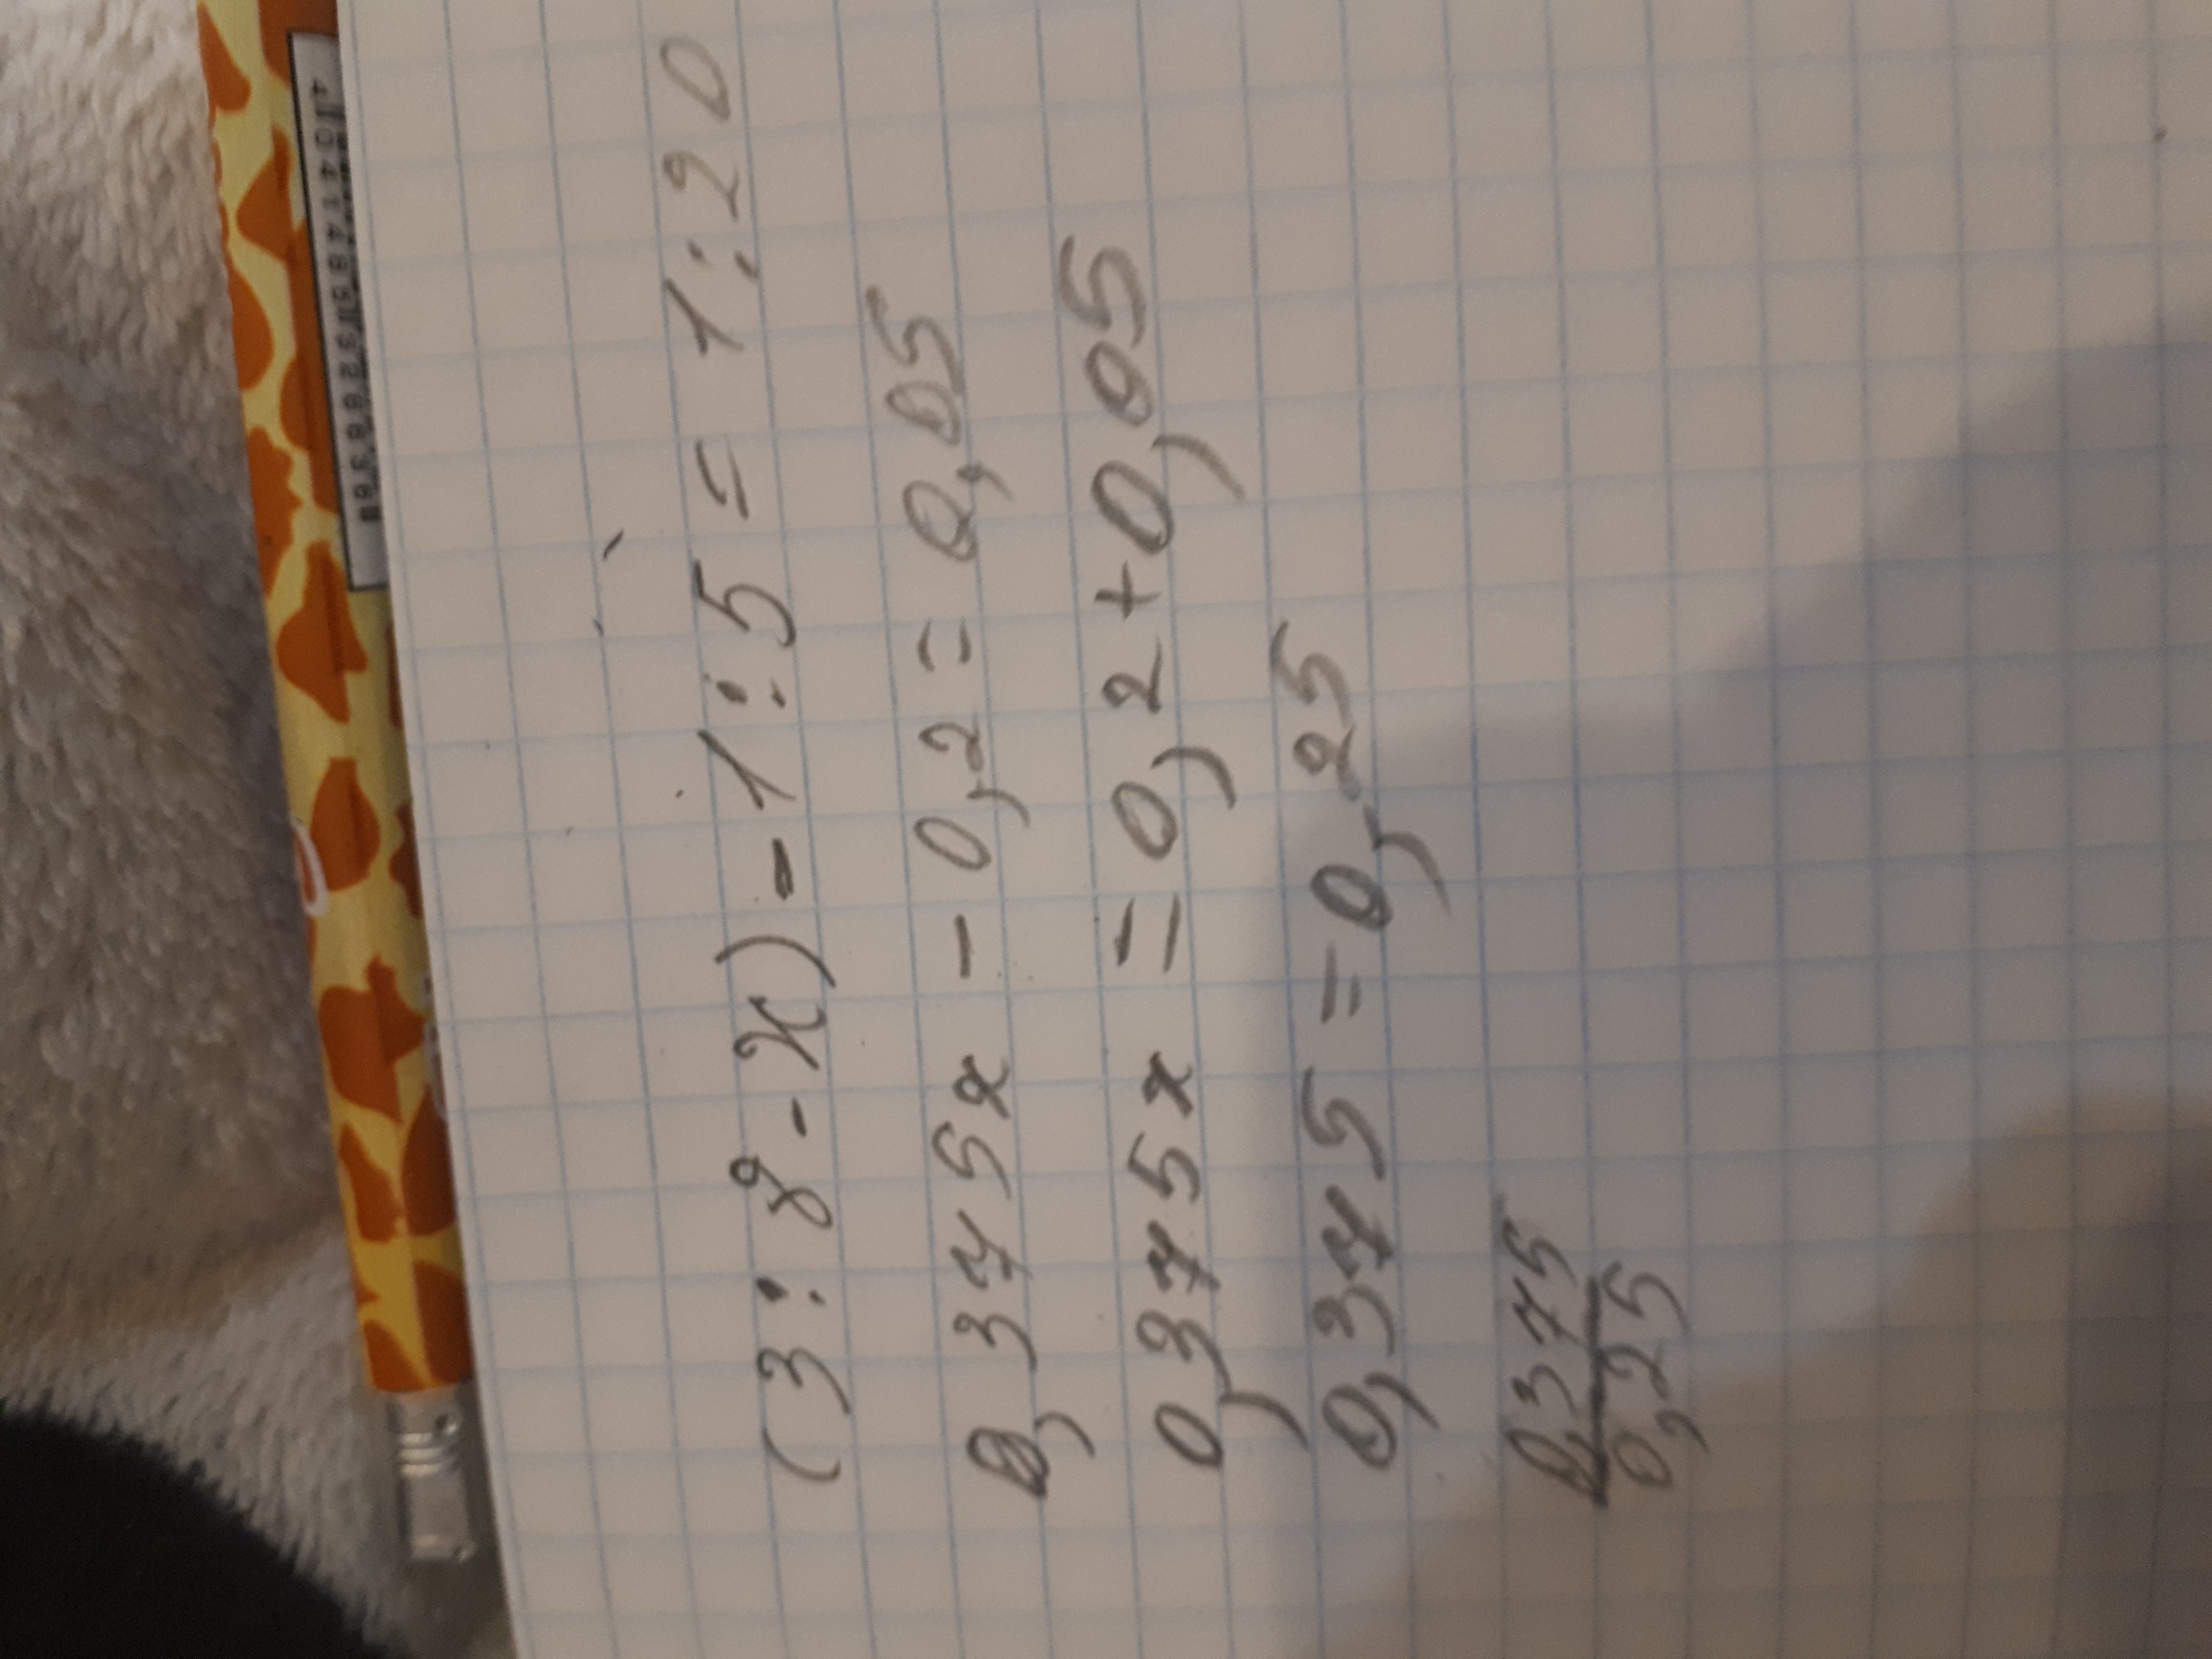 (3:8-x)-1:5=1:20
0,375x-0,2=0,05
0,375x=0,2+0,05
0,375=0,25
0,375
0,25